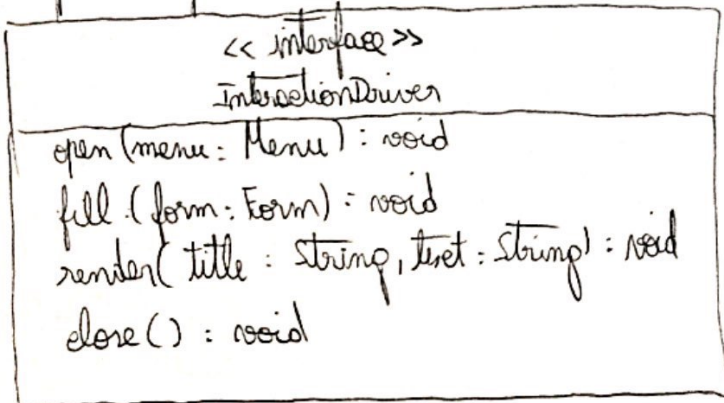 << interface >>
InteractionDriver
open (menu : Menu) : void
fill (form : Form) : void
render( title : String, text : String) : void
close() : void